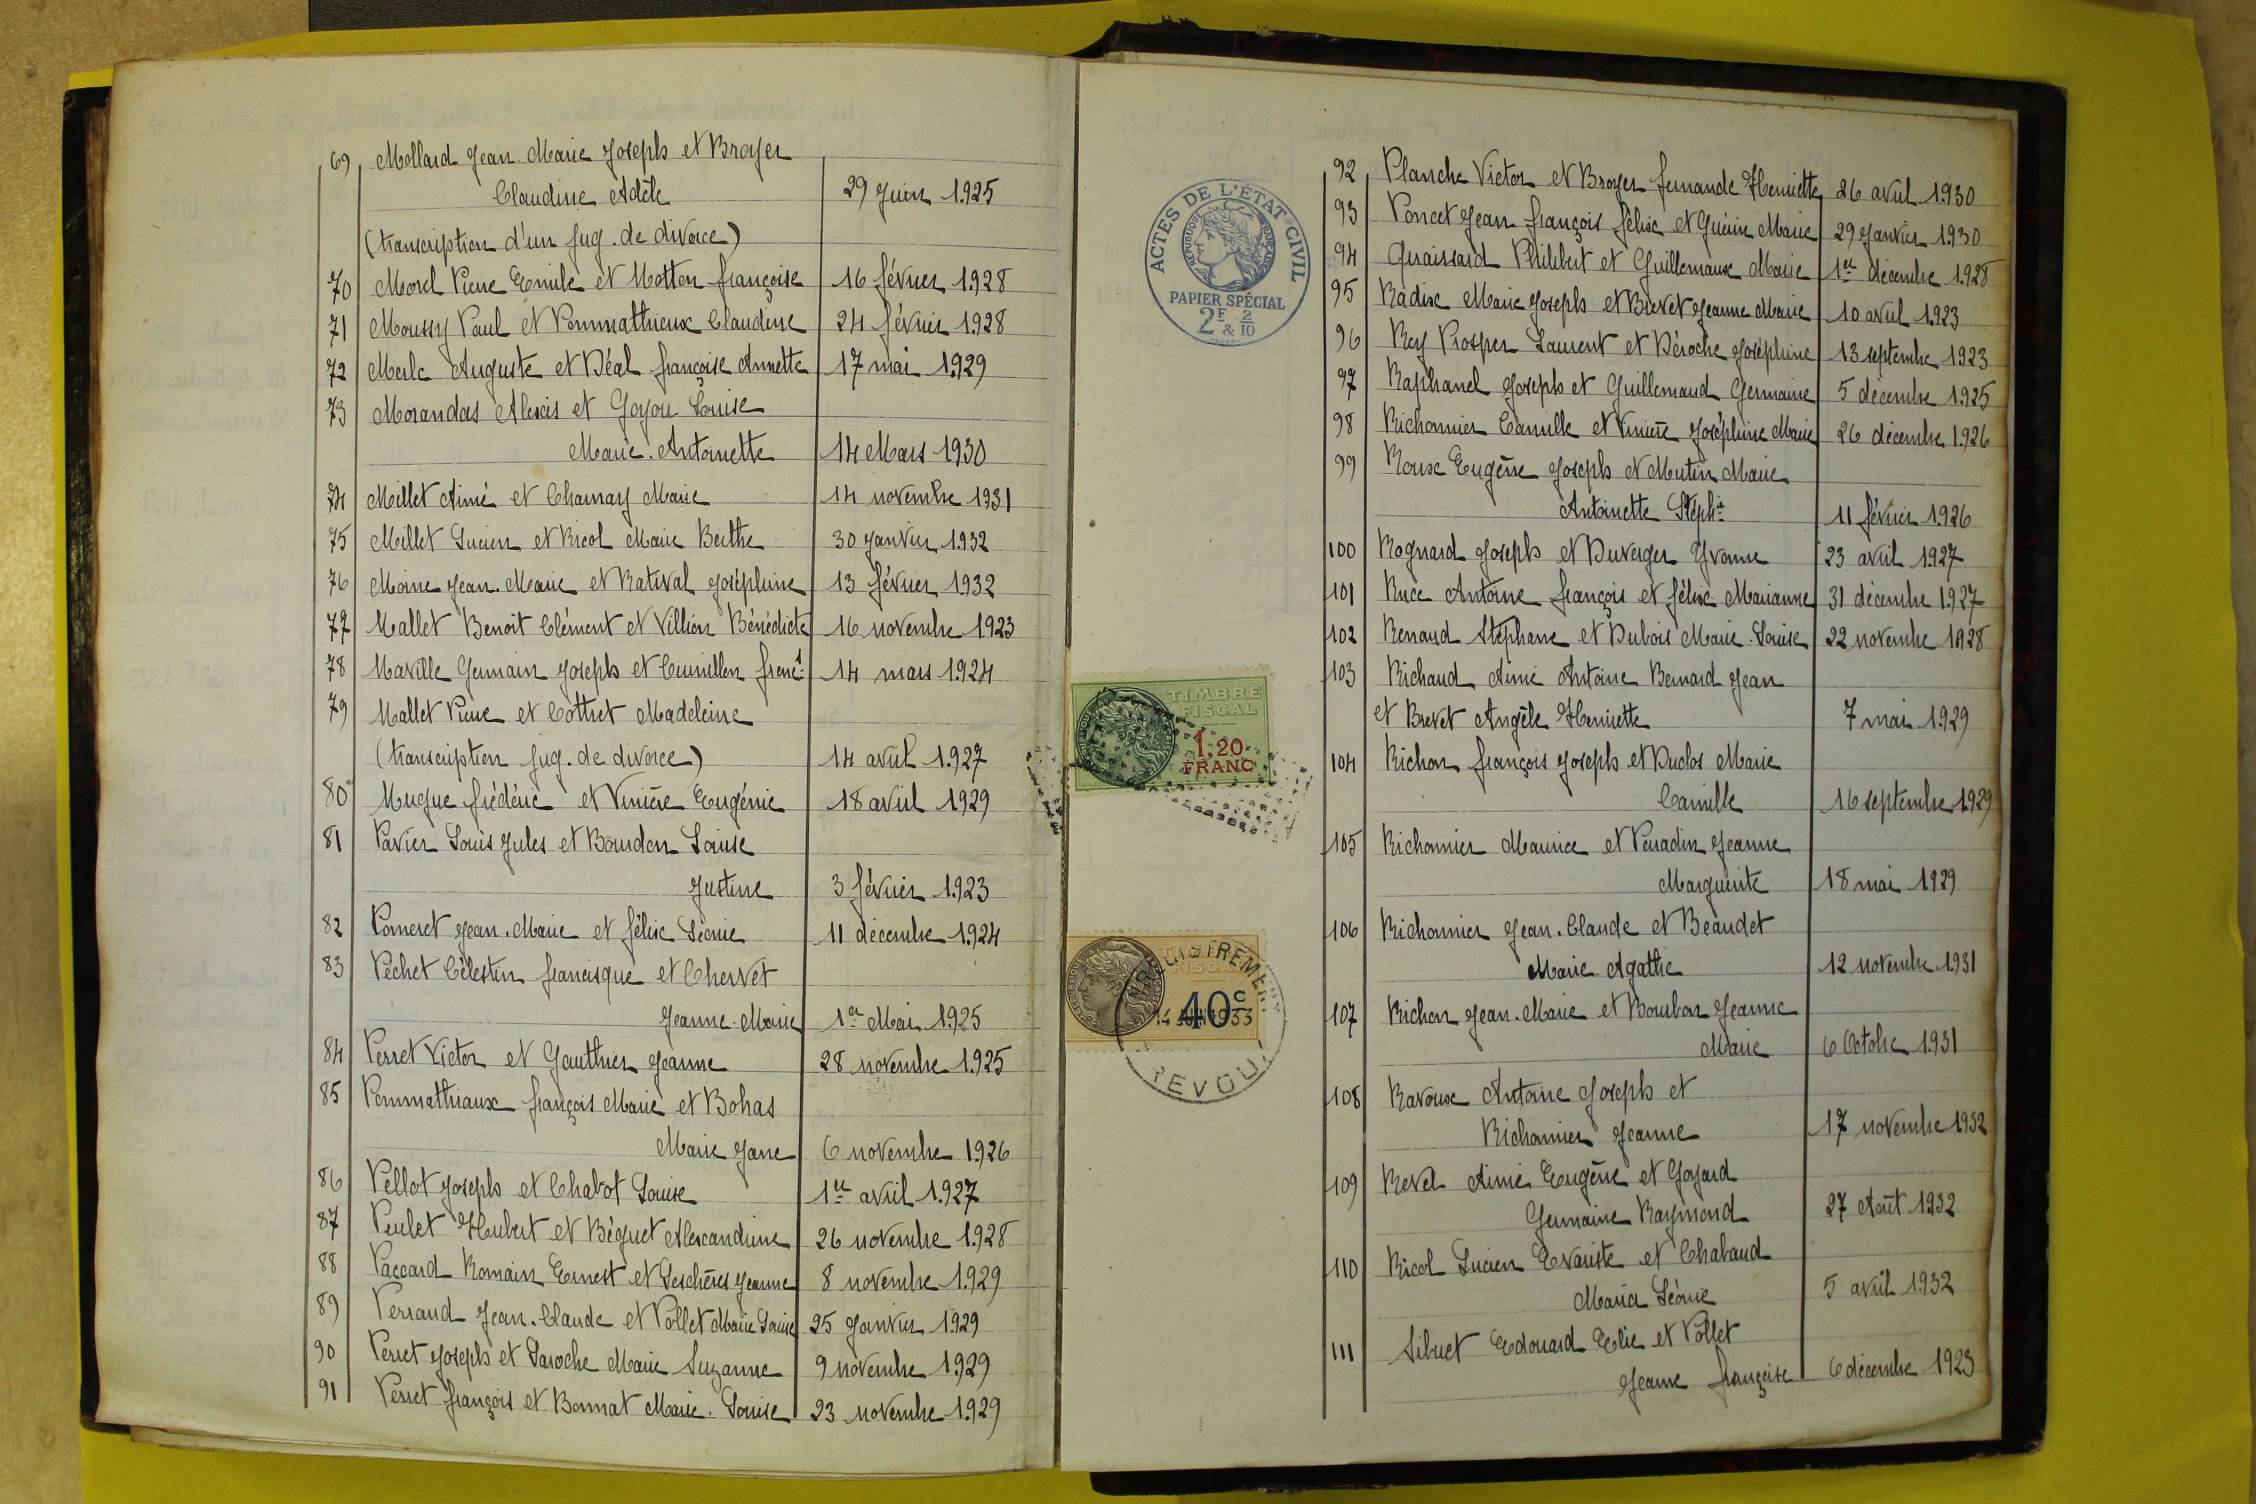 69 Mollard Jean-Marie Joseph et Broyer
Claudine Adèle 29 Juin 1925
(transcription d'un jug. de divorce)
70 Morel Pierre Emile et Motton françoise 16 février 1928
71 Moussy Paul et Pommathieux Claudine 24 février 1928
72 Merle Auguste et Déal françoise Annette 17 mai 1929
73 Morandas Alexis et Goyou Louise
Marie-Antoinette 14 Mars 1930
74 Millet Aimé et Charnay Marie 14 novembre 1931
75 Millet Lucien et Ricol Marie Berthe 30 Janvier 1932
76 Moine Jean-Marie et Rativat Joséphine 13 février 1932
77 Mallet Benoît Clément et Villion Bénédicte 16 novembre 1923
78 Maville Germain Joseph et Cumillon 14 mars 1924
79 Mallet Pierre et Cottret Madeleine
(transcription jug. de divorce) 14 avril 1927
80 Mugue frédéric et Vinière Eugénie 18 avril 1929
81 Pavier Louis Jules et Bourdon Louise
Justine 3 février 1923
82 Pomeret Jean-Marie et félix Léonie 11 décembre 1924
83 Péchet Célestin francisque et Chervet
Jeanne-Marie 1er Mai 1925
84 Perret Victor et Gauthier Jeanne 28 novembre 1925
85 Pommathiaux françois Marie et Bohas
Marie Jane 6 novembre 1926
86 Pellot Joseph et Chabot Louise 1er avril 1927
87 Perlet Hubert et Béguet Alexandrine 26 novembre 1928
88 Paccard Romain Ernest et Deschères Jeanne 8 novembre 1929
89 Perraud Jean-Claude et Pollet Marie Louise 25 Janvier 1929
90 Perret Joseph et Laroche Marie Suzanne 9 novembre 1929
91 Perret françois et Bonnat Marie-Louise 23 novembre 1929
ACTES DE L'ÉTAT CIVIL
RÉPUBLIQUE FRANÇAISE
PAPIER SPÉCIAL
2F & 2/10
TIMBRE
FISCAL
1,20
FRANC
FISCAL
40c
14 1933
92 Planche Victor et Broyer fernande Henriette 26 avril 1930
93 Poncet Jean françois félix et Guérin Marie 29 Janvier 1930
94 Quaissard Philibert et Guillemaux Marie 1er décembre 1928
95 Radix Marie Joseph et Brevet Jeanne Marie 10 avril 1923
96 Rey Prosper Laurent et Déroche Joséphine 13 septembre 1923
97 Raphanel Joseph et Guillemaud Germaine 5 décembre 1925
98 Richonnier Camille et Vinière Joséphine Marie 26 décembre 1926
99 Roux Eugène Joseph et Mutin Marie
Antoinette Stéphie 11 février 1926
100 Rognard Joseph et Duverger Yvonne 23 avril 1927
101 Ruce Antoine françois et félix Marianne 31 décembre 1927
102 Renaud Stéphane et Dubois Marie-Louise 22 novembre 1928
103 Richaud Aimé Antoine Bernard Jean
et Brevet Angèle Henriette 7 mai 1929
104 Richon françois Joseph et Duclos Marie
Camille 16 septembre 1929
105 Richonnier Maurice et Perradin Jeanne
Marguerite 18 mai 1929
106 Richonnier Jean-Claude et Beaudet
Marie Agathe 12 novembre 1931
107 Richon Jean-Marie et Bourbon Jeanne
Marie 6 Octobre 1931
108 Ravoux Antoine Joseph et
Richonnier Jeanne 17 novembre 1932
109 Revel Aimé Eugène et Goyard
Germaine Raymond 27 Août 1932
110 Ricol Lucien Evariste et Chabaud
Maria Léonie 5 avril 1932
111 Sibuet Edouard Elie et Pollet
Jeanne françoise 6 décembre 1923